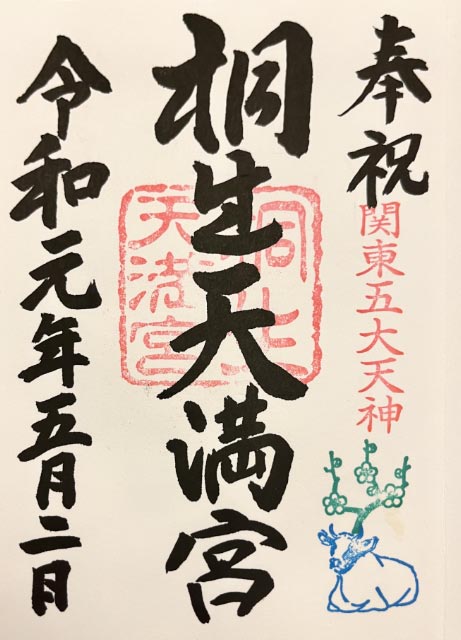 奉祝
関東五大天神
桐生天満宮
桐生
天満宮
令和元年五月二日